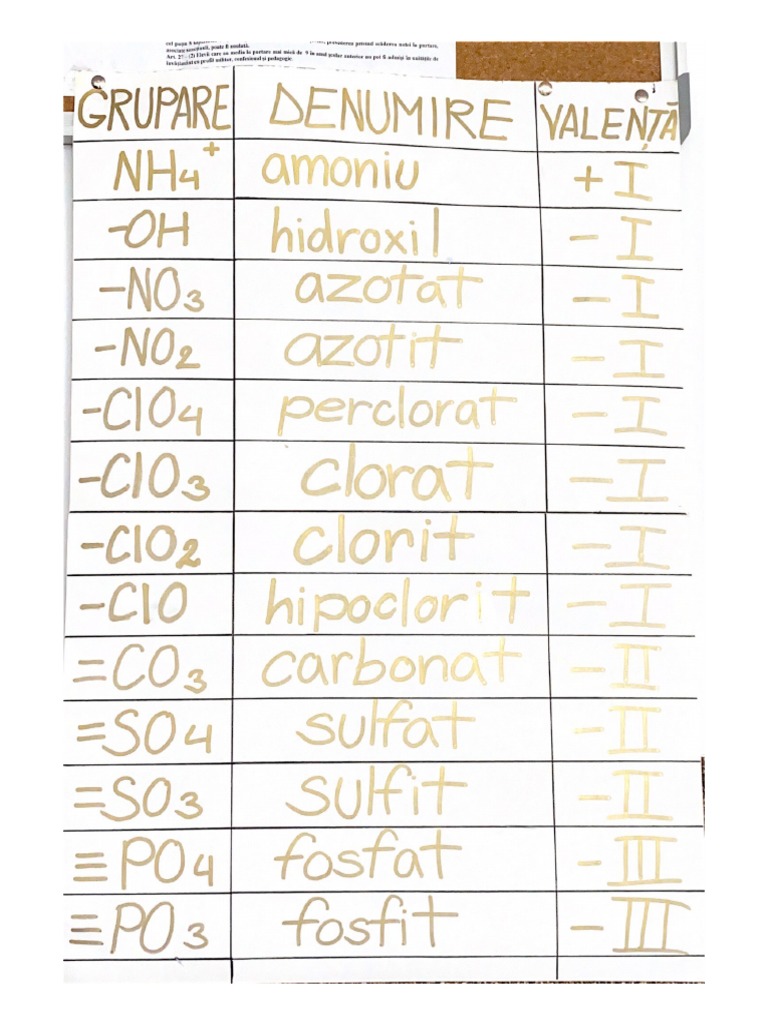 Art. 2 (2) Elevii care au media la purtare mai mică de 9 în anul școlar anterior nu pot fi admiși în unitățile de
învățământ cu profil militar, confesional și pedagogic.
GRUPARE DENUMIRE VALENȚĂ
NH₄⁺ amoniu +I
-OH hidroxil -I
-NO₃ azotat -I
-NO₂ azotit -I
-ClO₄ perclorat -I
-ClO₃ clorat -I
-ClO₂ clorit -I
-ClO hipoclorit -I
=CO₃ carbonat -II
=SO₄ sulfat -II
=SO₃ sulfit -II
≡PO₄ fosfat -III
≡PO₃ fosfit -III